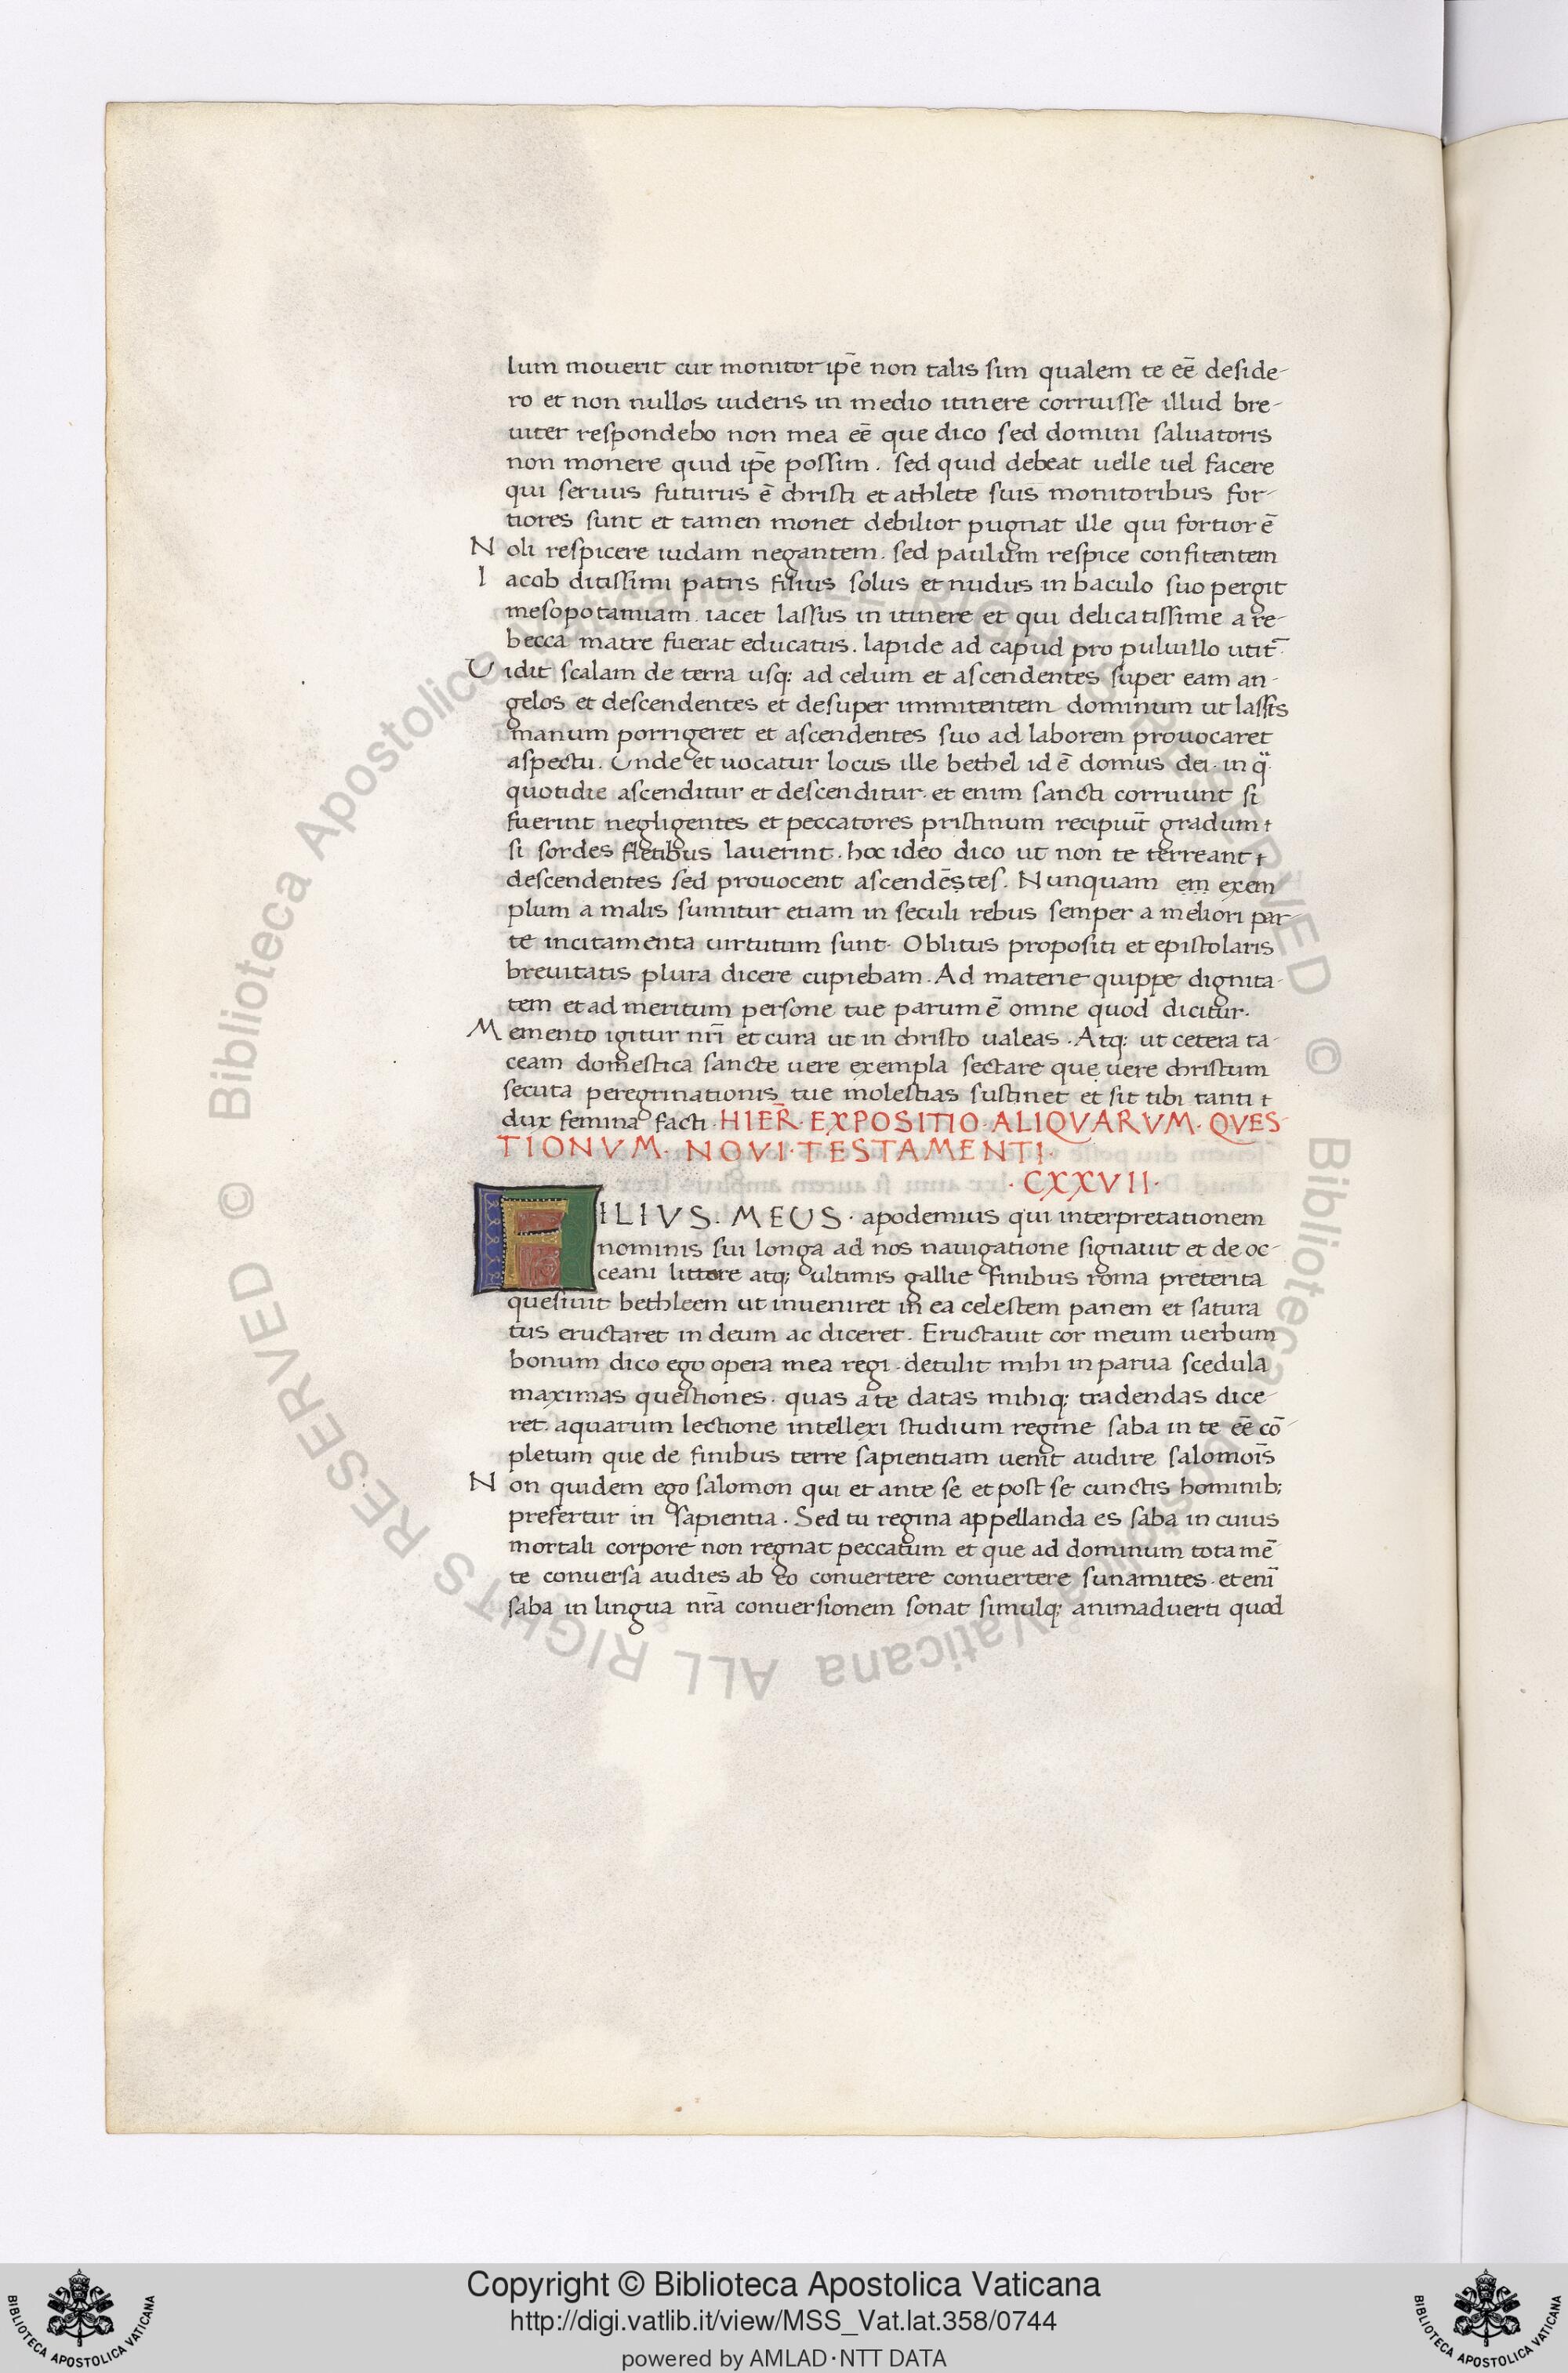 lum mouerit cur monitor ip̄e non talis sim qualem te eē deside-
ro et non nullos uideris in medio itinere corruisse illud bre-
uiter respondebo non mea eē que dico sed domini saluatoris
non monere quid ip̄e possim. sed quid debeat uelle uel facere
qui seruus futurus ē christi et athlete suis monitoribus for-
tiores sunt et tamen monet debilior pugnat ille qui fortior ē
Noli respicere iudam negantem. sed paulum respice confitentem
Iacob ditissimi patris filius solus et nudus in baculo suo pergit
mesopotamiam. iacet lassus in itinere et qui delicatissime a re-
becca matre fuerat educatus. lapide ad capud pro puluillo utit̄.
Uidit scalam de terra usq: ad celum et ascendentes super eam an-
gelos et descendentes et desuper innitentem dominum ut lassis
manum porrigeret et ascendentes suo ad laborem prouocaret
aspectu. Unde et uocatur locus ille bethel id ē domus dei. in q̈
quotidie ascenditur et descenditur. et enim sancti corruunt si
fuerint negligentes et peccatores pristinum recipiūt gradum
si sordes fletibus lauerint. hoc ideo dico ut non te terreant
descendentes sed prouocent ascendēṣtes. Nunquam eṃ exem
plum a malis sumitur etiam in seculi rebus semper a meliori par-
te incitamenta uirtutum sunt. Oblitus propositi et epistolaris
breuitatis plura dicere cupiebam. Ad materie quippe dignita-
tem et ad meritum persone tue parum ē omne quod dicitur.
Memento igitur nr̄i et cura ut in christo ualeas. Atq: ut cetera ta-
ceam domestica sancte uere exempla sectare que uere christum
secuta peregrinationis tue molestias sustinet et sit tibi tanti
dux femina facti. HIER̄. EXPOSITIO ALIQVARVM. QVES-
TIONVM. NOVI. TESTAMENTI.
.CXXVII.
FILIVS. MEUS. apodemius qui interpretationem
nominis sui longa ad nos nauigatione signauit et de oc-
ceani littore atq; ultimis gallie finibus roma preterita
quesiuit bethleem ut inueniret in ea celestem panem et satura
tus eructaret in deum ac diceret. Eructauit cor meum uerbum
bonum dico ego opera mea regi. detulit mihi in parua scedula
maximas questiones. quas a te datas mihiq; tradendas dice-
ret. aquarum lectione intellexi studium regine saba in te eē cō-
pletum que de finibus terre sapientiam uenit audire salomoīs
Non quidem ego salomon qui et ante se et post se cunctis hominib;
prefertur in sapientia. Sed tu regina appellanda es saba in cuius
mortali corpore non regnat peccatum et que ad dominum tota mē
te conuersa audies ab eo conuertere conuertere sunamites. et enī
saba in lingua nr̄a conuersionem sonat simulq; animaduerti quod
Copyright © Biblioteca Apostolica Vaticana
http://digi.vatlib.it/view/MSS_Vat.lat.358/0744
powered by AMLAD·NTT DATA
BIBLIOTECA APOSTOLICA VATICANA
BIBLIOTECA APOSTOLICA VATICANA
© Biblioteca Apostolica Vaticana ALL RIGHTS RESERVED © Biblioteca Apostolica Vaticana ALL RIGHTS RESERVED